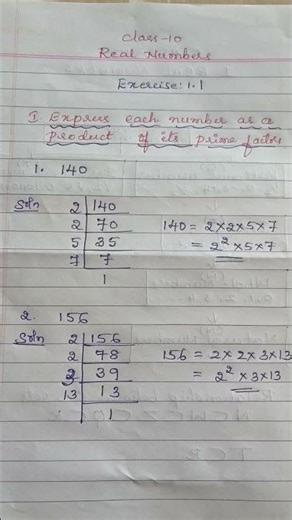 Class-10
Real Numbers
Exercise: 1.1
I Express each number as a
product of its prime factors
1. 140
Soln 2 | 140
2 | 70 140 = 2×2×5×7
5 | 35 = 2²×5×7
7 | 7
1
2. 156
Soln 2 | 156
2 | 78 156 = 2×2×3×13
3 | 39 = 2²×3×13
13 | 13
1